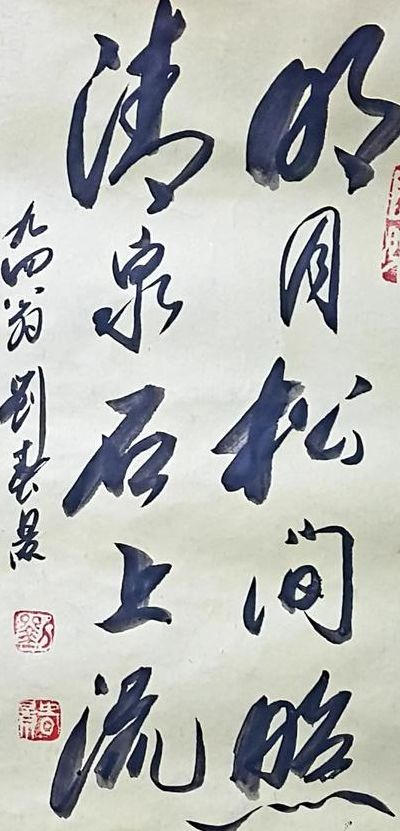 明月松间照
清泉石上流
九四翁 劉春景
劉